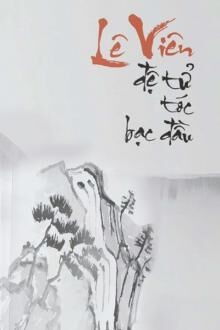 Lê Viên
đệ tử
tóc
bạc đầu